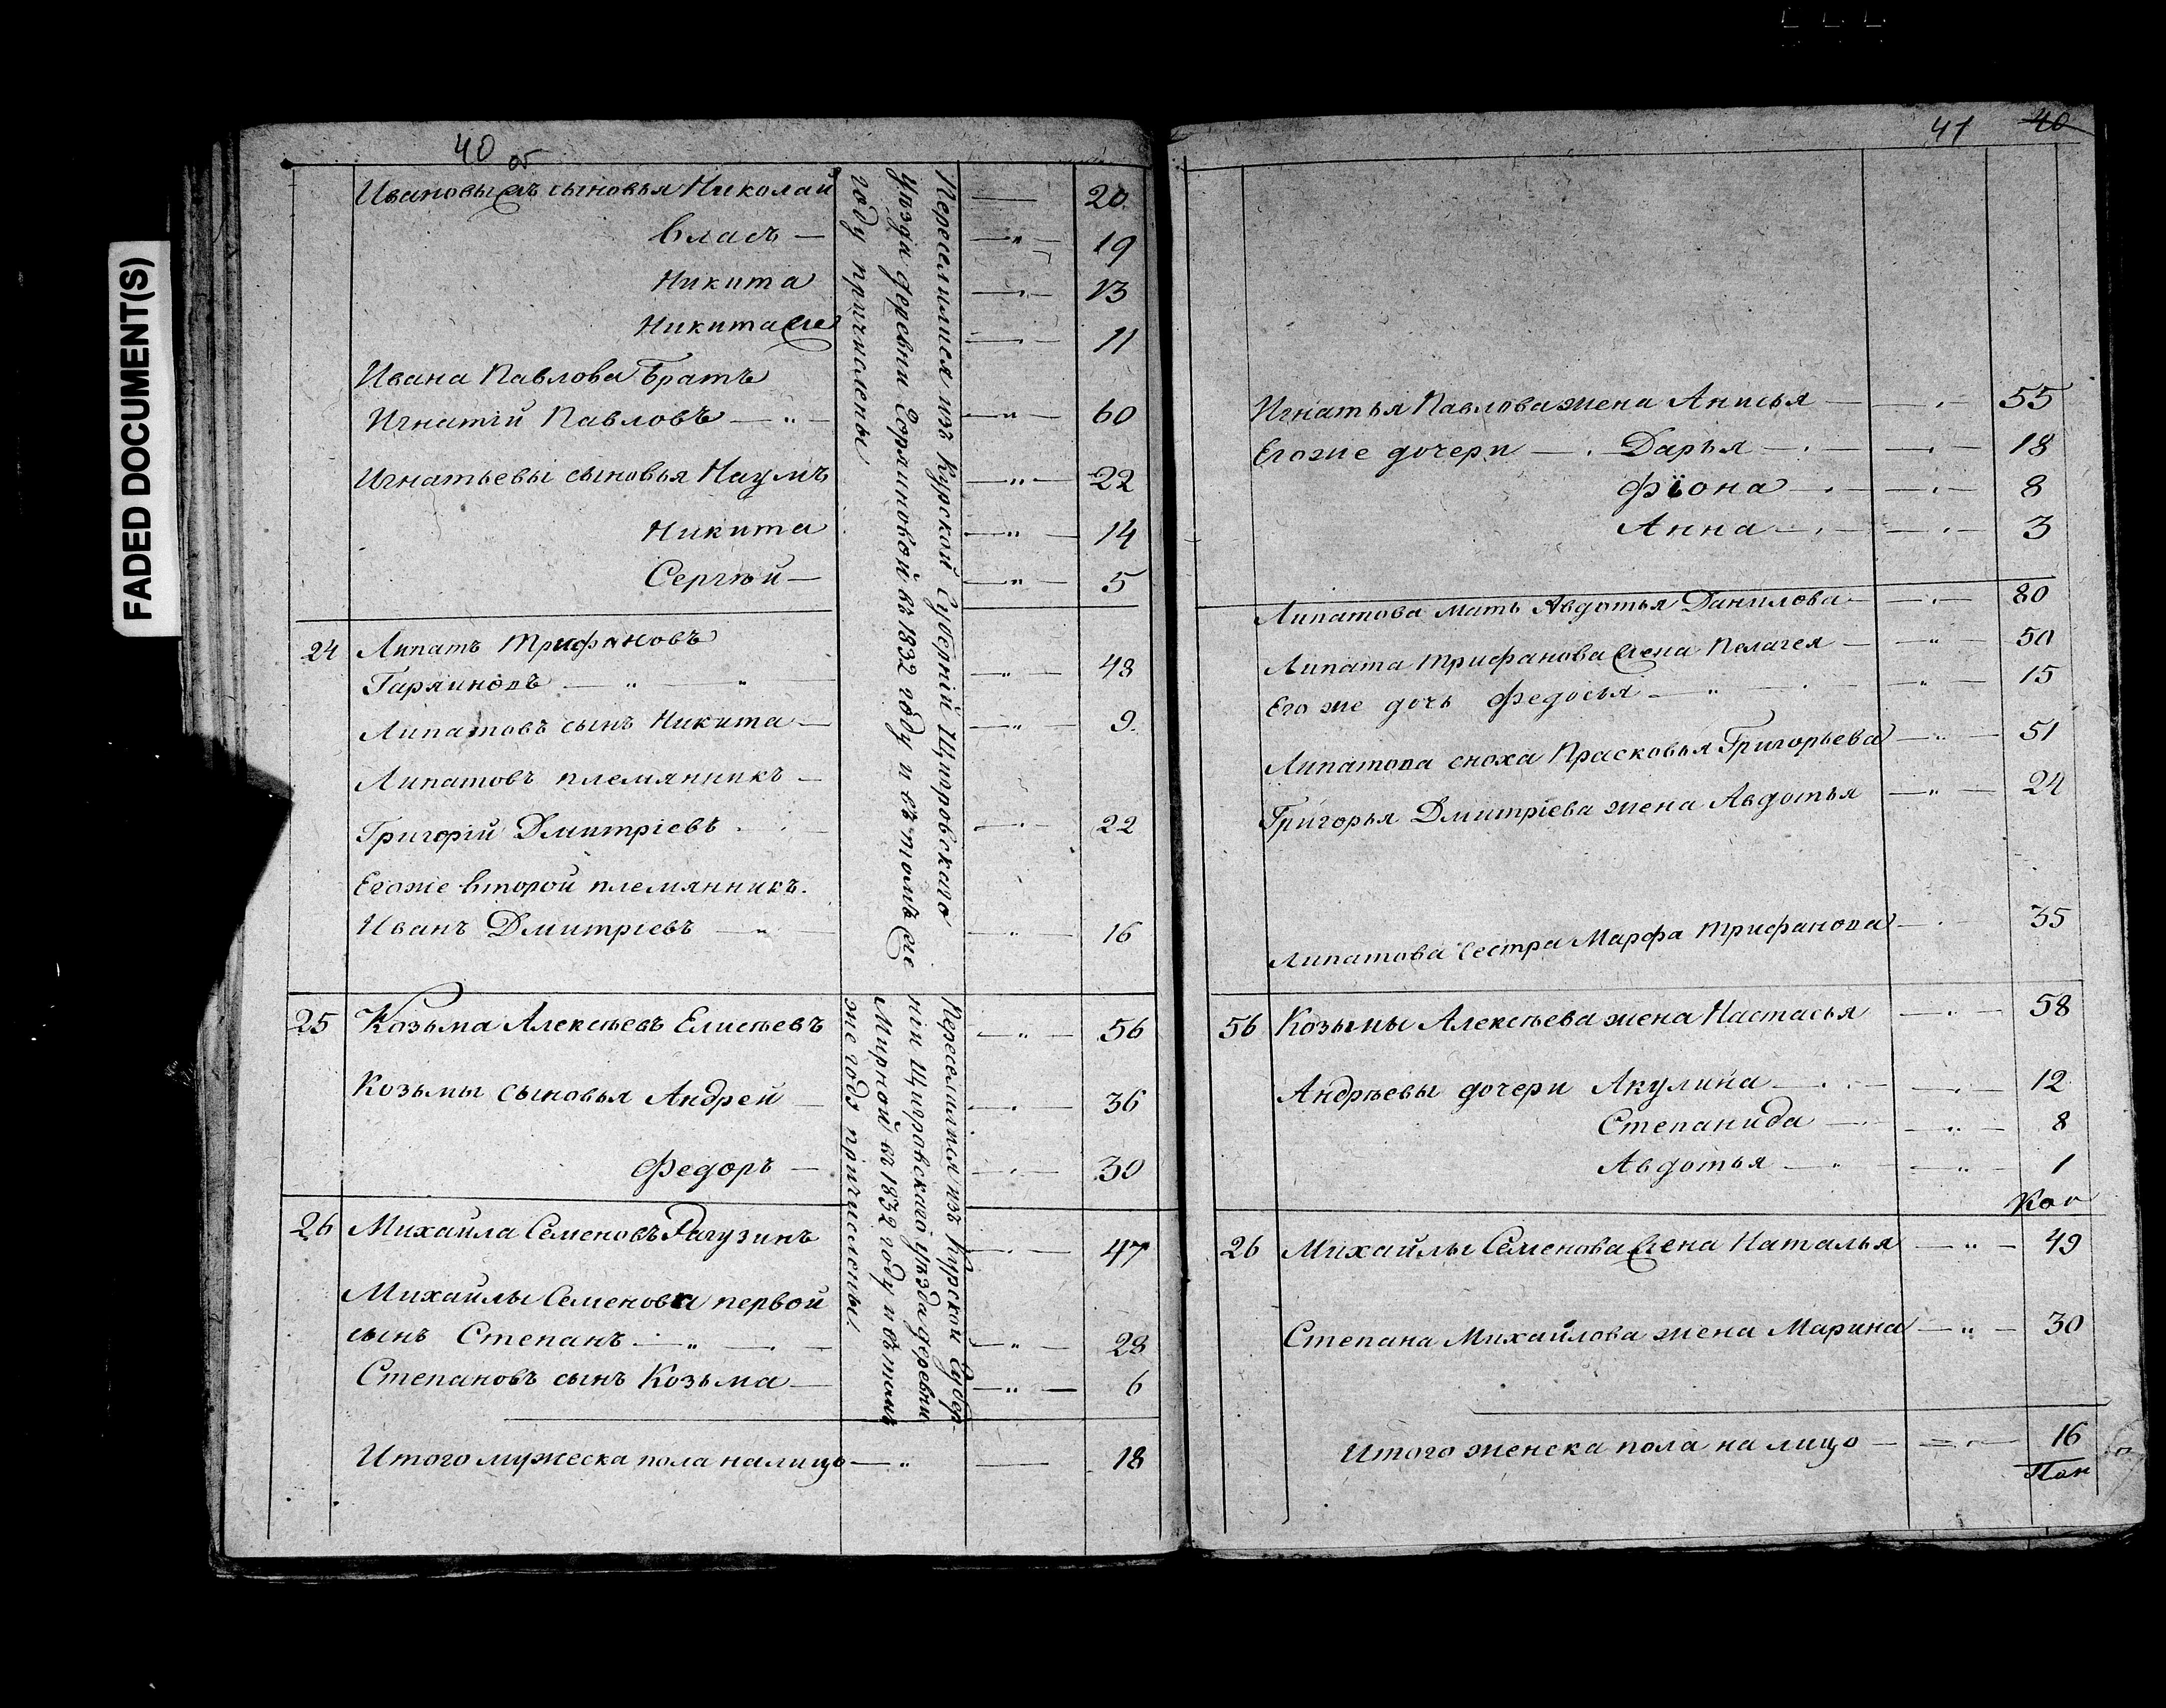 FADED DOCUMENT(S)
40 об
Ивановы жъ сыновья Николай — 20
Власъ — „ — 19
Никита — „ — 13
Никита же — „ — 11
Ивана Павлова братъ
Игнатій Павловъ — „ — 60
Игнатьевы сыновья Наумъ — „ — 22
Никита — „ — 14
Сергѣй — „ — 5
24 Липатъ Трифановъ
Гаряиновъ — „ — 48
Липатовъ сынъ Никита — „ — 9
Липатовъ племянникъ —
Григорій Дмитріевъ — „ — 22
Егоже второй племянникъ.
Иванъ Дмитріевъ — „ — 16
Переселились изъ Курской Губерніи Щигровскаго
уѣзда деревни Горяиновой въ 1832 году и въ томъ же
году причислены
25 Козьма Алексѣевъ Елисѣевъ — „ — 56
Козьмы сыновья Андрей — „ — 36
Федоръ — „ — 30
26 Михайла Семеновъ Рагузинъ — „ — 47
Михайлы Семенова первой
сынъ Степанъ — „ — 28
Степановъ сынъ Козьма — „ — 6
Переселились изъ Курской Губер-
ніи Щигравскаго уѣзда деревни
Мирной въ 1832 году и въ томъ
же годэ причислены.
Итого мужеска пола налицо — „ — 18
41 40
Игнатья Павлова жена Анисья — „ — 55
Егоже дочери — Дарья — „ — 18
Фіона — „ — 8
Анна — „ — 3
Липатова мать Авдотья Данилова — „ — 80
Липата Трифанова жена Пелагея — „ — 50
Его же дочь Федосья — „ — 15
Липатова сноха Прасковья Григорьева — „ — 51
Григорья Дмитріева жена Авдотья — „ — 24
Липатова сестра Марфа Трифанова — „ — 35
56 Козьмы Алексѣева жена Настасья — „ — 58
Андрѣевы дочери Акулина — „ — 12
Степанида — „ — 8
Авдотья — „ — 1
26 Михайлы Семенова жена Наталья — „ — 49
Степана Михайлова жена Марина — „ — 30
Итого женска пола на лицо — „ — 16